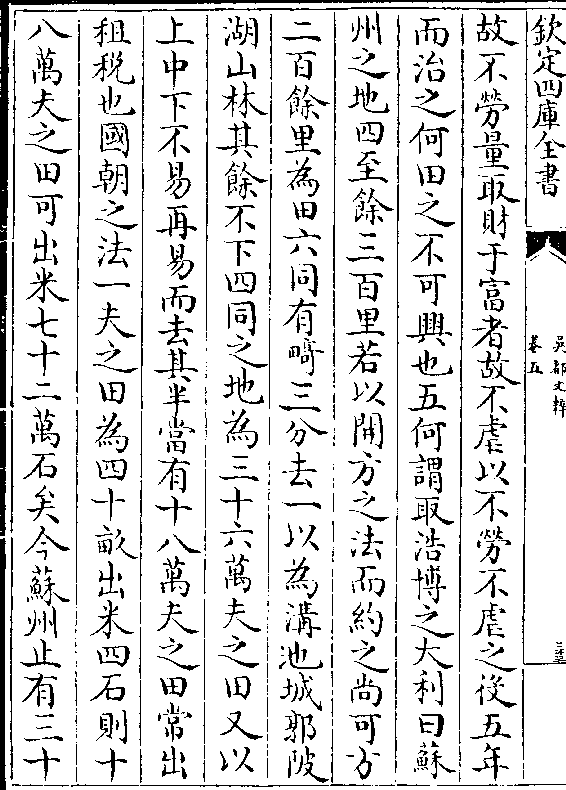 欽定四庫全書
吳都文粹
卷五
故不勞量取財于富者故不虐以不勞不虐之後五年
而治之何田之不可興也五何謂取浩博之大利曰蘇
州之地四至餘三百里若以開方之法而約之尚可方
二百餘里為田六同有畸三分去一以為溝池城郭陂
湖山林其餘不下四同之地為三十六萬夫之田又以
上中下不易再易而去其半當有十八萬夫之田常出
租稅也國朝之法一夫之田為四十畝出米四石則十
八萬夫之田可出米七十二萬石矣今蘇州止有三十